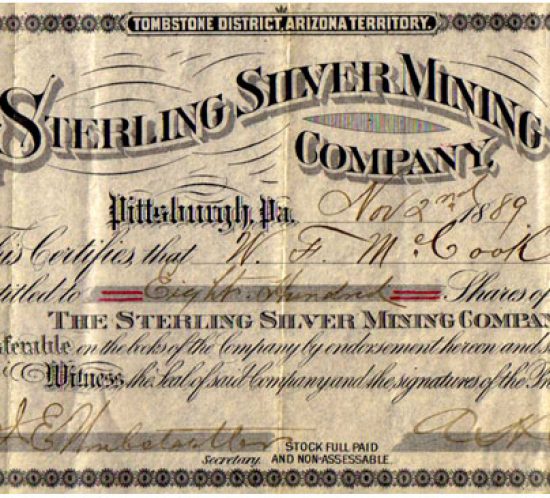 TOMBSTONE DISTRICT, ARIZONA TERRITORY.
STERLING SILVER MINING
COMPANY.
Pittsburgh, Pa. Nov 2nd 1889
his Certifies, that W. F. McCook
titled to Eight Hundred Shares of
THE STERLING SILVER MINING COMPAN
ferable on the books of the Company by endorsement hereon and s
Witness, the Seal of said Company and the signatures of the Pr
Secretary.
STOCK FULL PAID
AND NON-ASSESSABLE.